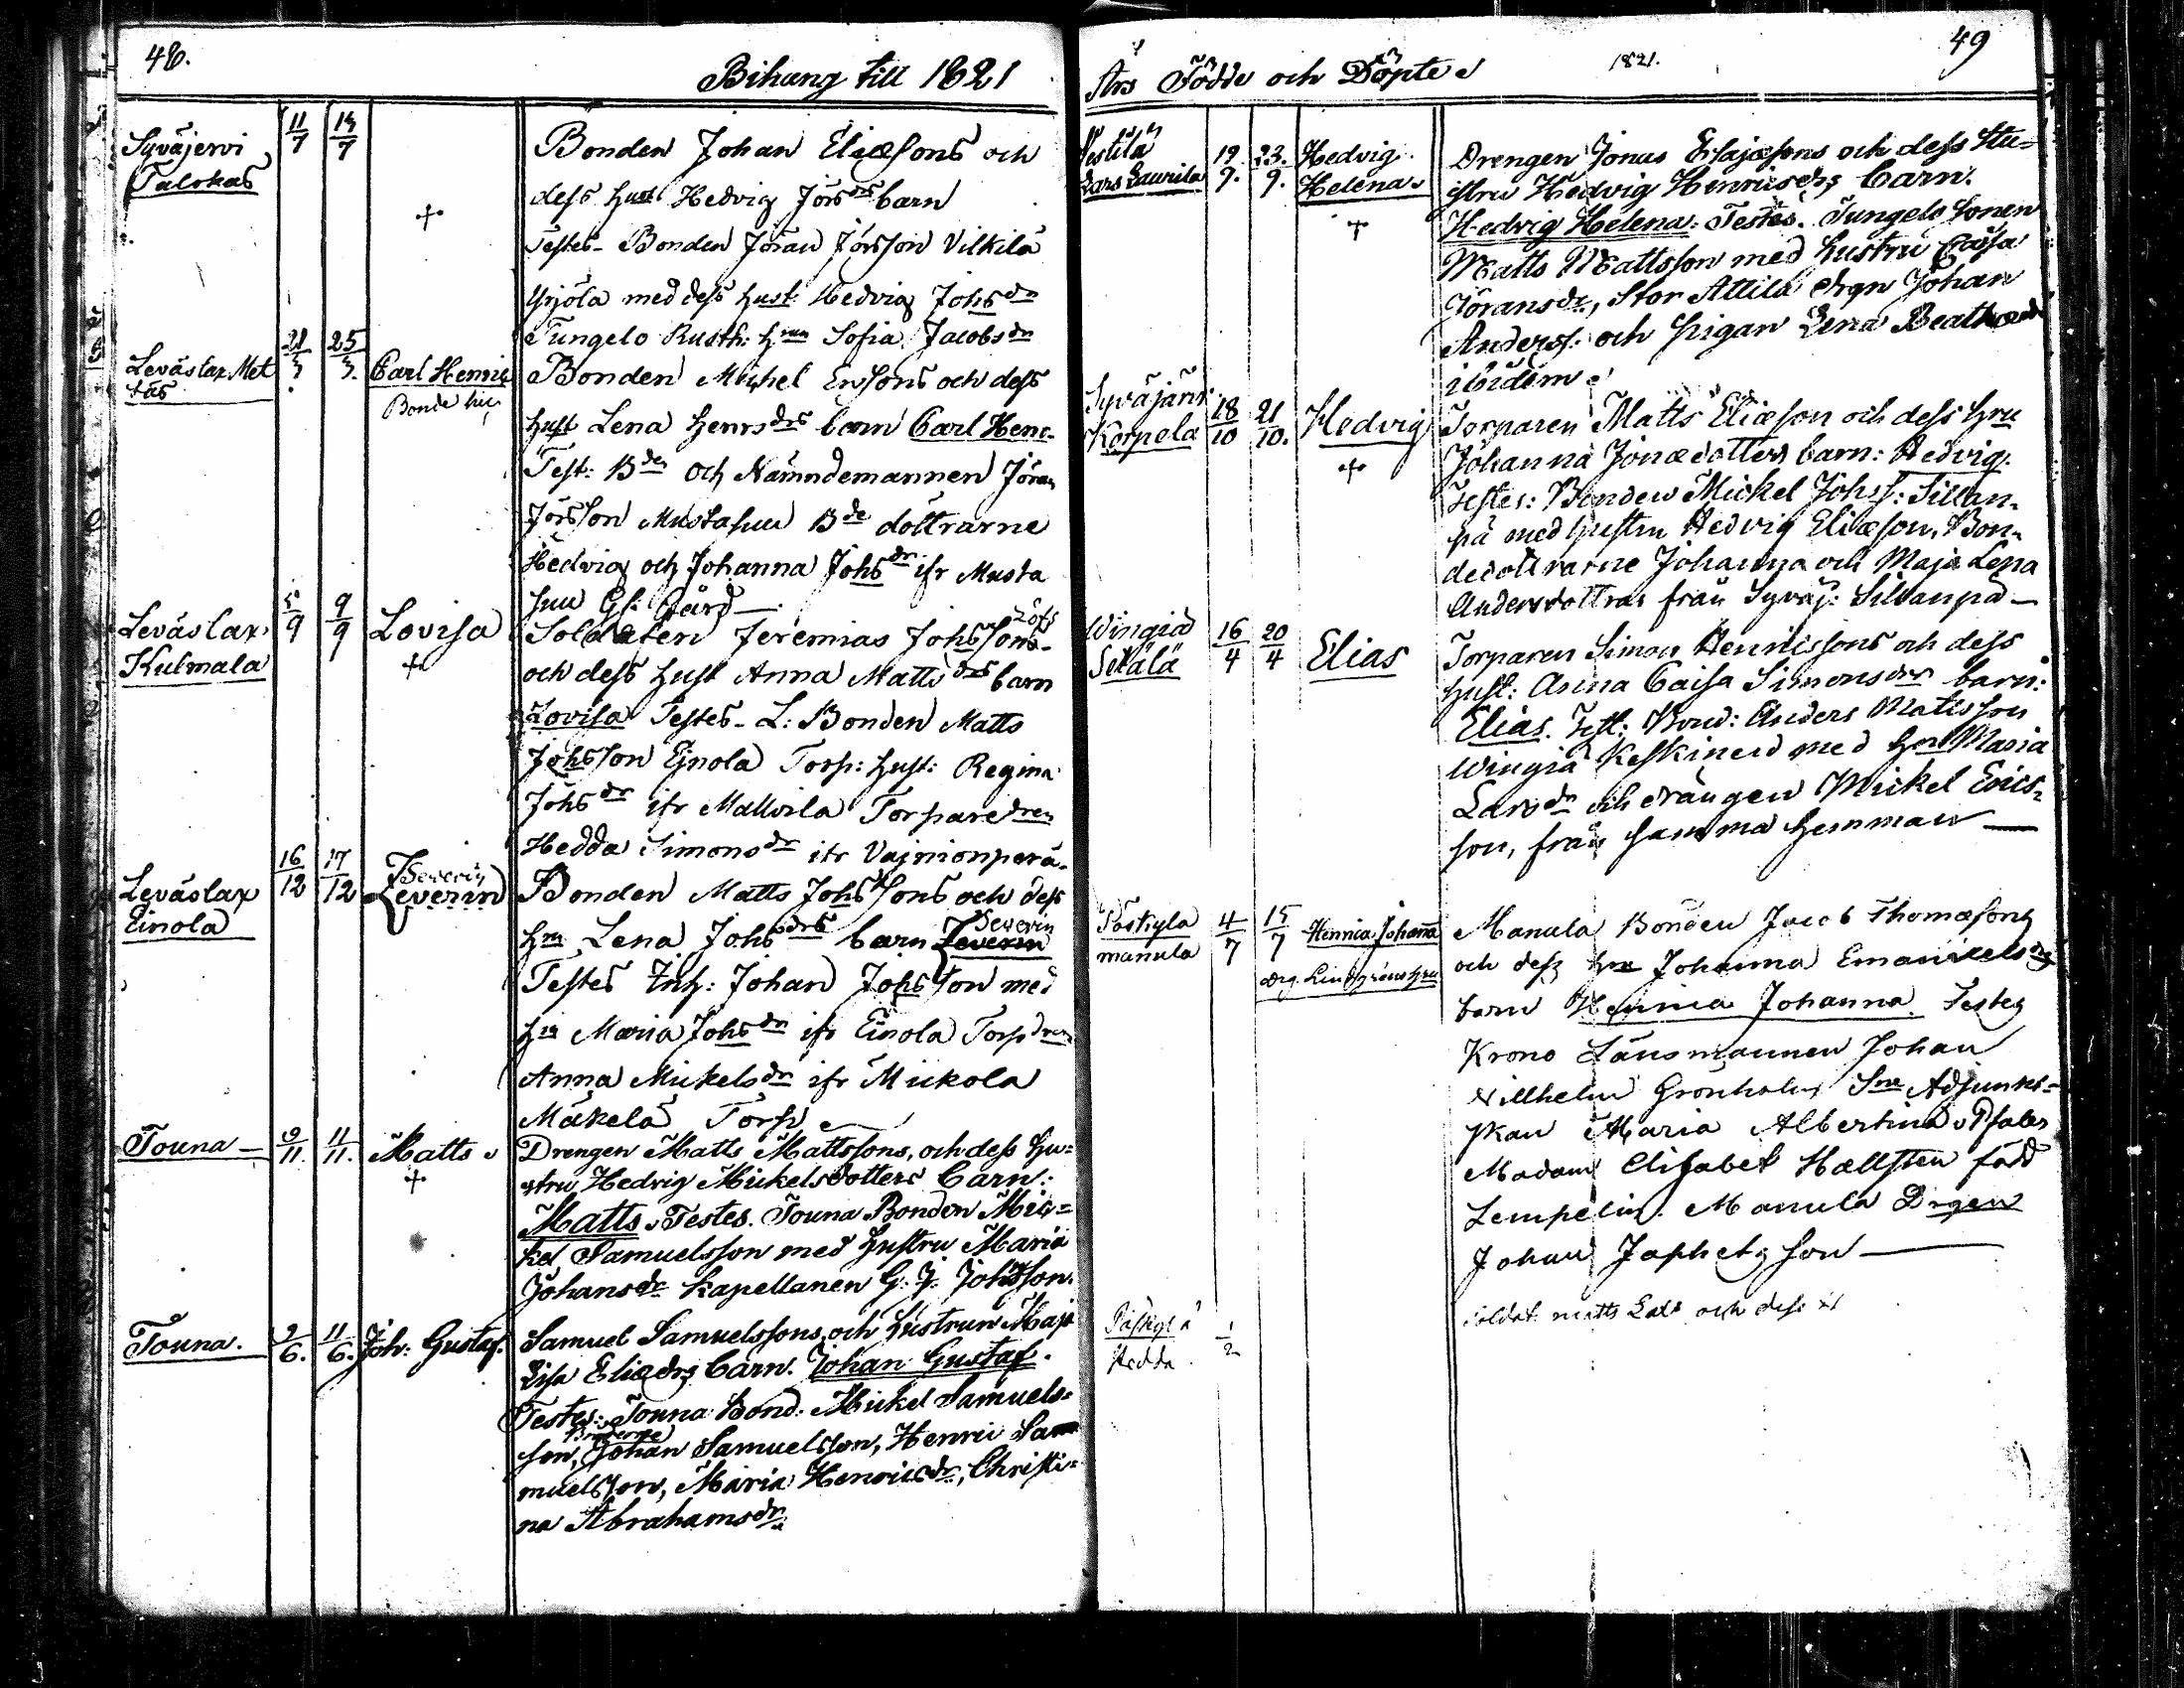 48.
Bihang till 1821
Syväjervi
Talokas
11/7
14/7
+
Bonden Johan Eliæsons och
dess hust Hedvig Jörsdrs barn
Testes- Bonden Jöran Jörsson Vilkilä
Yrjölä med dess hust: Hedvig Johsdr
Tungelo Rusth: Hrun Sofia Jacobsdr
Leväslax Met
täs
21/3
25/3.
Carl Henric
Bonde hic
Bonden Michel Ersons och dess
hust Lena Henrsdrs barn Carl Henr-
Test: Bden och Nämndemannen Jöran
Jörsson Mustasuu Bde döttrarne
Hedvig och Johanna Johsdr ifr Musta
suu Gl: Gård —
Leväslax
Kulmala
5/9
9/9
Lovisa
+
Soldaten Jeremias Johssons Löfs
och dess hust Anna Mattsdrs barn
Lovisa Testes- L: Bonden Matts
Johsson Einola Torp: hust: Regina
Johsdr ifr Mallvila Torparedren
Hedda Simonsdr ifr Vajnionperä-
Leväslax
Einola
16/12
17/12
Severin
Severin
Bonden Matts Johssons och dess
hru Lena Johsdrs barn Severin
Severin
Testes Inh: Johan Johsson med
hru Maria Johsdr ifr Einola Torpdren
Anna Mickelsdr ifr Mickola
Mäkelä Torp
Touna —
9/11.
11/11.
Matts
+
Drengen Matts Mattssons, och dess Hu=
stru Hedvig Mickelsdotters Barn:
Matts. Testes. Touna Bonden Mic=
kel Samuelsson med Hustru Maria
Johansdr Kapellanen G: J: Johsson.
Touna.
9/6.
11/6.
Joh: Gustaf.
Samuel Samuelssons och Hustrun Maja
Lisa Eliædrs Barn. Johan Gustaf.
Testes: Touna Bond: Mickel Samuels=
Bröderne
son, Johan Samuelsson, Henric Sa
muelsson, Maria Henricsdr, Christi=
na Abrahamsdr
Års Födde och Döpte
1821.
49
Pestilä
Lars Laurila
19/9.
23./9.
Hedvig
Helena
+
Drengen Jonas Esajæsons och dess Hu=
stru Hedvig Henricsdrs Barn.
Hedvig Helena. Testes. Tungelo Sonen
Matts Mattsson med Hustru Caisa
Göransdr, Stor Attila drgn Johan
Anderss: och Pigan Lena Beata
ibidem
Syväjärvi
Korpela
18/10
21/10.
Hedvig
+
Torparen Matts Eliæson och dess hru
Johanna Jonædotters barn: Hedvig.
Testes: Bonden Mickel Johss: Sillan-
pä med Hustru Hedvig Eliæson, Bon-
dedöttrarne Johanna och Maja Lena
Andersdöttrar från Syväj: Sillanpä —
Wingiä
Setälä
16/4
20/4
Elias
Torparen Simon Henricssons och dess
hust: Anna Caisa Simonsdrs barn:
Elias. Test: Bond: Anders Mattsson
Wingiä Keskinen med hru Maria
Larsdr och drängen Mickel Erics=
son, från samma hemman —
Påskyla
manula
4/7
15/7
Hennica Johanna
drg. Lindgréns hru
Manula Bonden Jacob Thomæsons
och dess hru Johanna Emanuelsdrs
barn Hennica Johanna Testes
Krono Länsmannen Johan
Willhelm Grönholm, Adjunks-
skan Maria Albertina
Madam Elisabet Hællsten född
Lempelin. Manula Drgen
Johan Japhetsson —
Påskyla
Hedda
1/2
Soldat matts Lats och dess